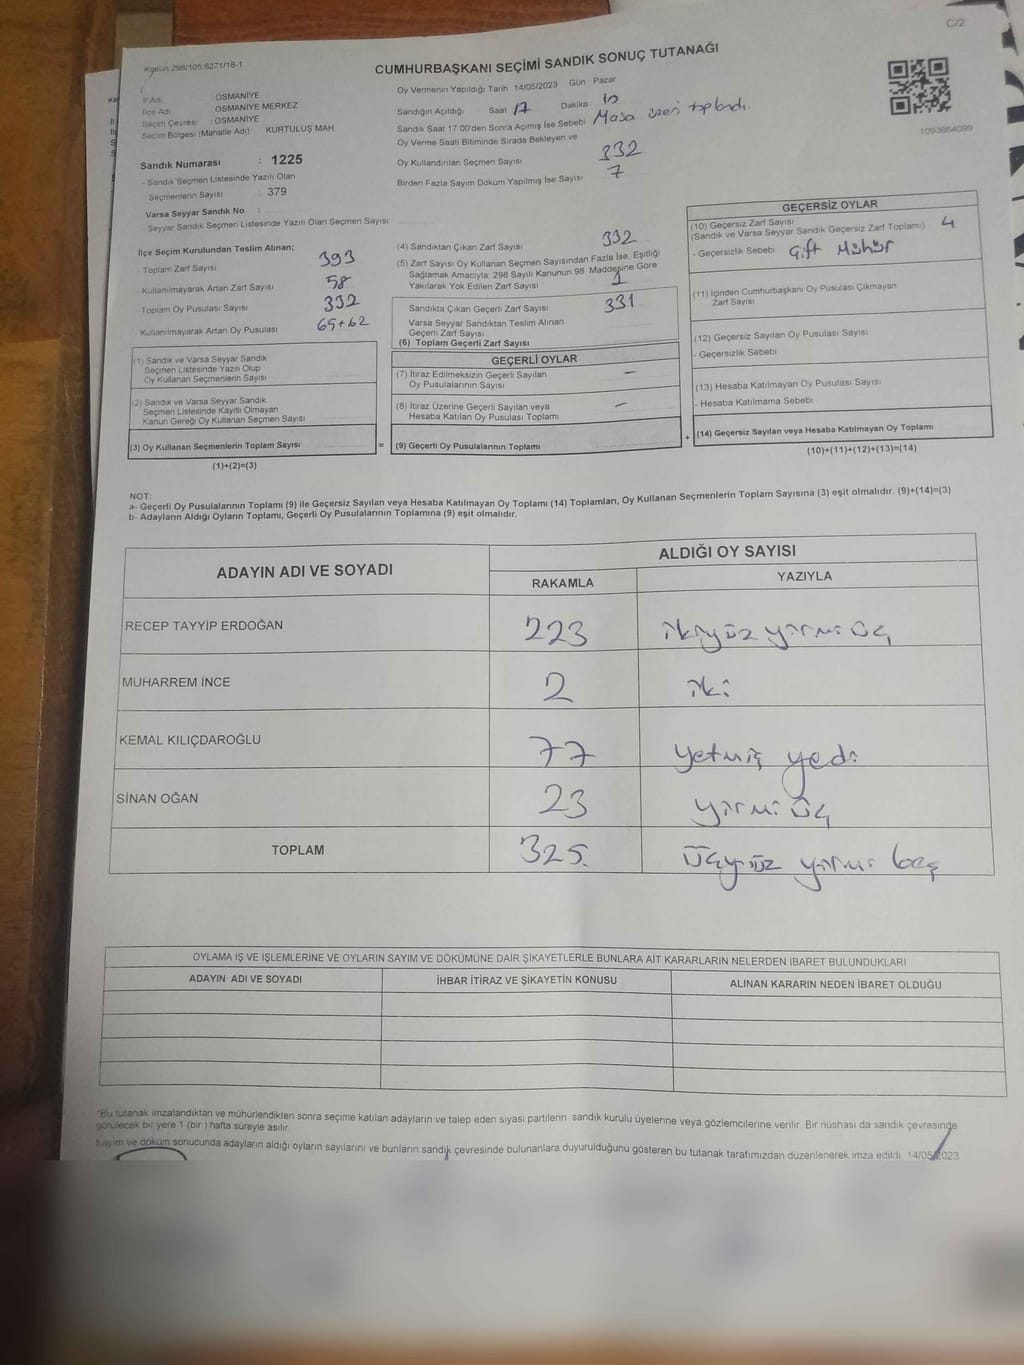 C/2
Kanun 298/105 6271/18-1
CUMHURBAŞKANI SEÇİMİ SANDIK SONUÇ TUTANAĞI
İl Adı : OSMANİYE
İlçe Adı : OSMANİYE MERKEZ
Seçim Çevresi : OSMANİYE
Seçim Bölgesi (Mahalle Adı) KURTULUŞ MAH.
Sandık Numarası : 1225
- Sandık Seçmen Listesinde Yazılı Olan
Seçmenlerin Sayısı : 379
Varsa Seyyar Sandık No :
- Seyyar Sandık Seçmen Listesinde Yazılı Olan Seçmen Sayısı
Oy Vermenin Yapıldığı Tarih 14/05/2023 Gün Pazar
Sandığın Açıldığı Saat 17 Dakika 10
Sandık Saat 17 00'den Sonra Açımış İse Sebebi Masa üzeri toplandı.
Oy Verme Saati Bitiminde Sırada Bekleyen ve
Oy Kullandırılan Seçmen Sayısı 332
Birden Fazla Sayım Döküm Yapılmış İse Sayısı 7
1093664099
İlçe Seçim Kurulundan Teslim Alınan;
Toplam Zarf Sayısı 393
Kullanılmayarak Artan Zarf Sayısı 58
Toplam Oy Pusulası Sayısı 332
Kullanılmayarak Artan Oy Pusulası 65+62
(1) Sandık ve Varsa Seyyar Sandık
Seçmen Listesinde Yazılı Olup
Oy Kullanan Seçmenlerin Sayısı
(2) Sandık ve Varsa Seyyar Sandık
Seçmen Listesinde Kayıtlı Olmayan
Kanun Gereği Oy Kullanan Seçmen Sayısı
(3) Oy Kullanan Seçmenlerin Toplam Sayısı
(1)+(2)=(3)
=
(4) Sandıktan Çıkan Zarf Sayısı 332
(5) Zarf Sayısı Oy Kullanan Seçmen Sayısından Fazla İse, Eşitliği
Sağlamak Amacıyla 298 Sayılı Kanunun 98. Maddesine Göre
Yakılarak Yok Edilen Zarf Sayısı 1
Sandıkta Çıkan Geçerli Zarf Sayısı 331
Varsa Seyyar Sandıktan Teslim Alınan
Geçerli Zarf Sayısı
(6) Toplam Geçerli Zarf Sayısı
GEÇERLİ OYLAR
(7) İtiraz Edilmeksizin Geçerli Sayılan
Oy Pusulalarının Sayısı –
(8) İtiraz Üzerine Geçerli Sayılan veya
Hesaba Katılan Oy Pusulası Toplamı –
(9) Geçerli Oy Pusulalarının Toplamı
+
GEÇERSİZ OYLAR
(10) Geçersiz Zarf Sayısı
(Sandık ve Varsa Seyyar Sandık Geçersiz Zarf Toplamı) 4
- Geçersizlik Sebebi Çift Mühür
(11) İçinden Cumhurbaşkanı Oy Pusulası Çıkmayan
Zarf Sayısı
(12) Geçersiz Sayılan Oy Pusulası Sayısı
- Geçersizlik Sebebi
(13) Hesaba Katılmayan Oy Pusulası Sayısı
- Hesaba Katılmama Sebebi
(14) Geçersiz Sayılan veya Hesaba Katılmayan Oy Toplamı
(10)+(11)+(12)+(13)=(14)
NOT:
a- Geçerli Oy Pusulalarının Toplamı (9) ile Geçersiz Sayılan veya Hesaba Katılmayan Oy Toplamı (14) Toplamları, Oy Kullanan Seçmenlerin Toplam Sayısına (3) eşit olmalıdır. (9)+(14)=(3)
b- Adayların Aldığı Oyların Toplamı, Geçerli Oy Pusulalarının Toplamına (9) eşit olmalıdır.
ADAYIN ADI VE SOYADI
ALDIĞI OY SAYISI
RAKAMLA YAZIYLA
RECEP TAYYİP ERDOĞAN 223 ikiyüz yirmi üç
MUHARREM İNCE 2 iki
KEMAL KILIÇDAROĞLU 77 yetmiş yedi
SİNAN OĞAN 23 yirmi üç
TOPLAM 325. üçyüz yirmi beş
OYLAMA İŞ VE İŞLEMLERİNE VE OYLARIN SAYIM VE DÖKÜMÜNE DAİR ŞİKAYETLERLE BUNLARA AİT KARARLARIN NELERDEN İBARET BULUNDUKLARI
ADAYIN ADI VE SOYADI İHBAR İTİRAZ VE ŞİKAYETİN KONUSU ALINAN KARARIN NEDEN İBARET OLDUĞU
*Bu tutanak imzalandıktan ve mühürlendikten sonra seçime katılan adayların ve talep eden siyasi partilerin sandık kurulu üyelerine veya gözlemcilerine verilir. Bir nüshası da sandık çevresinde
görülecek bir yere 1 (bir ) hafta süreyle asılır.
Sayım ve döküm sonucunda adayların aldığı oyların sayılarını ve bunların sandık çevresinde bulunanlara duyurulduğunu gösteren bu tutanak tarafımızdan düzenlenerek imza edildi. 14/05/2023